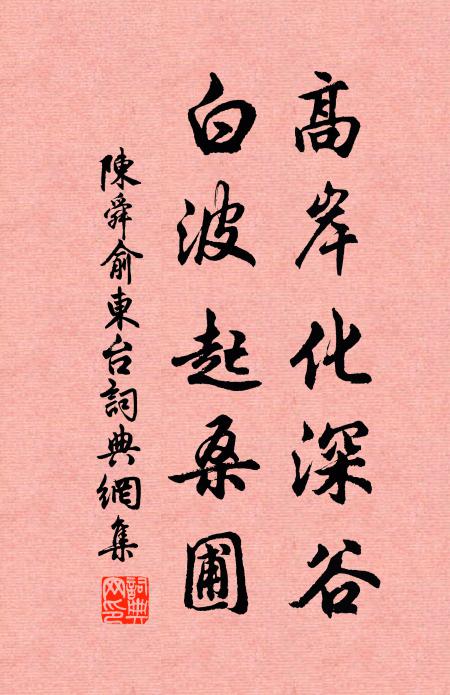 高岸化深谷
白波起桑圃
陳舜俞東台詞典網集
詞典网印